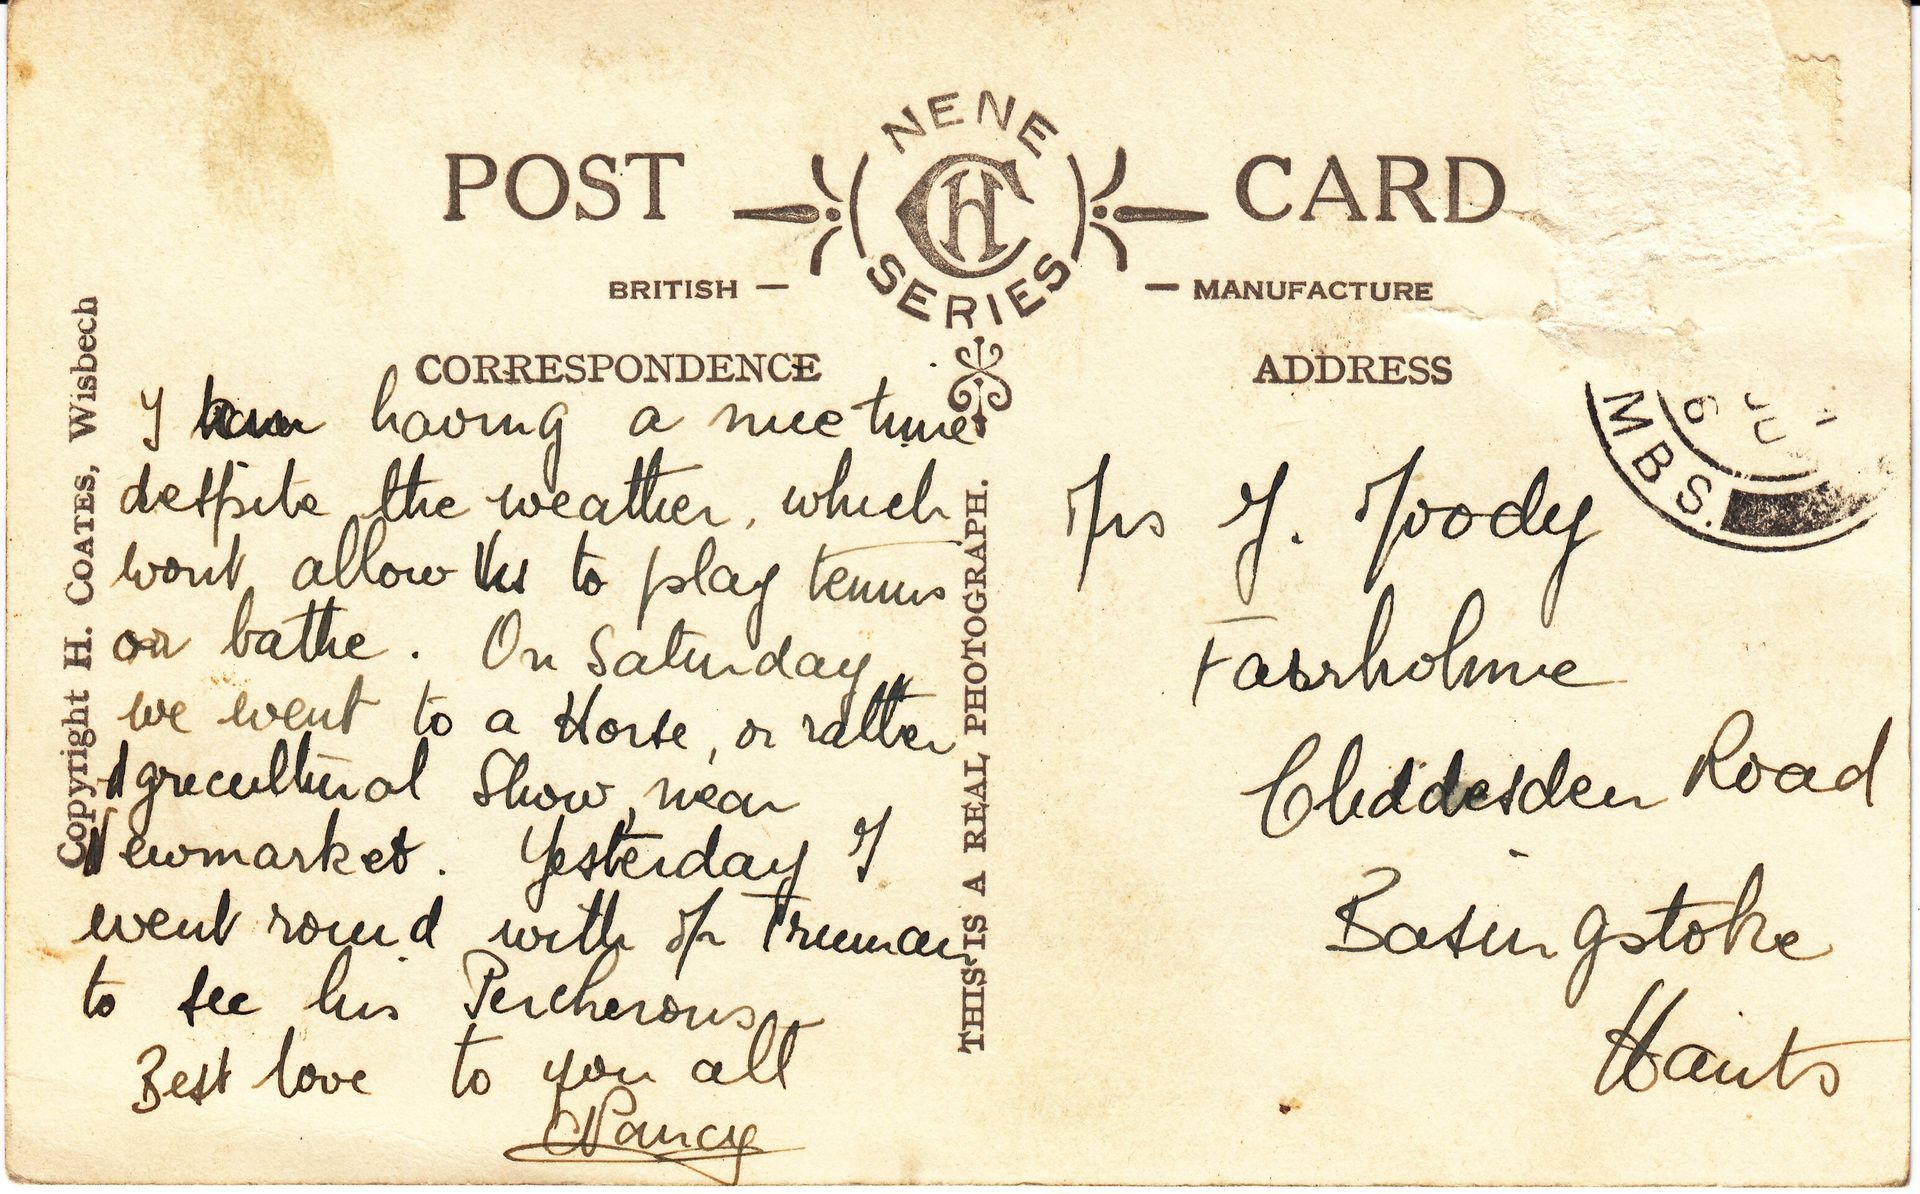 POST CARD
NENE
CH
SERIES
BRITISH — — MANUFACTURE
CORRESPONDENCE
ADDRESS
Copyright H. COATES, Wisbech
THIS IS A REAL PHOTOGRAPH.
I am having a nice time
despite the weather, which
wont allow us to play tennis
or bathe. On Saturday
we went to a Horse, or rather
Agricultural Show, near
Newmarket. Yesterday I
went round with Mr Truman
to see his Percherons
Best love to you all
Nancy
Mrs Moody
Fairholme
Cliddesden Road
Basingstoke
Hants
6 JU
MBS.